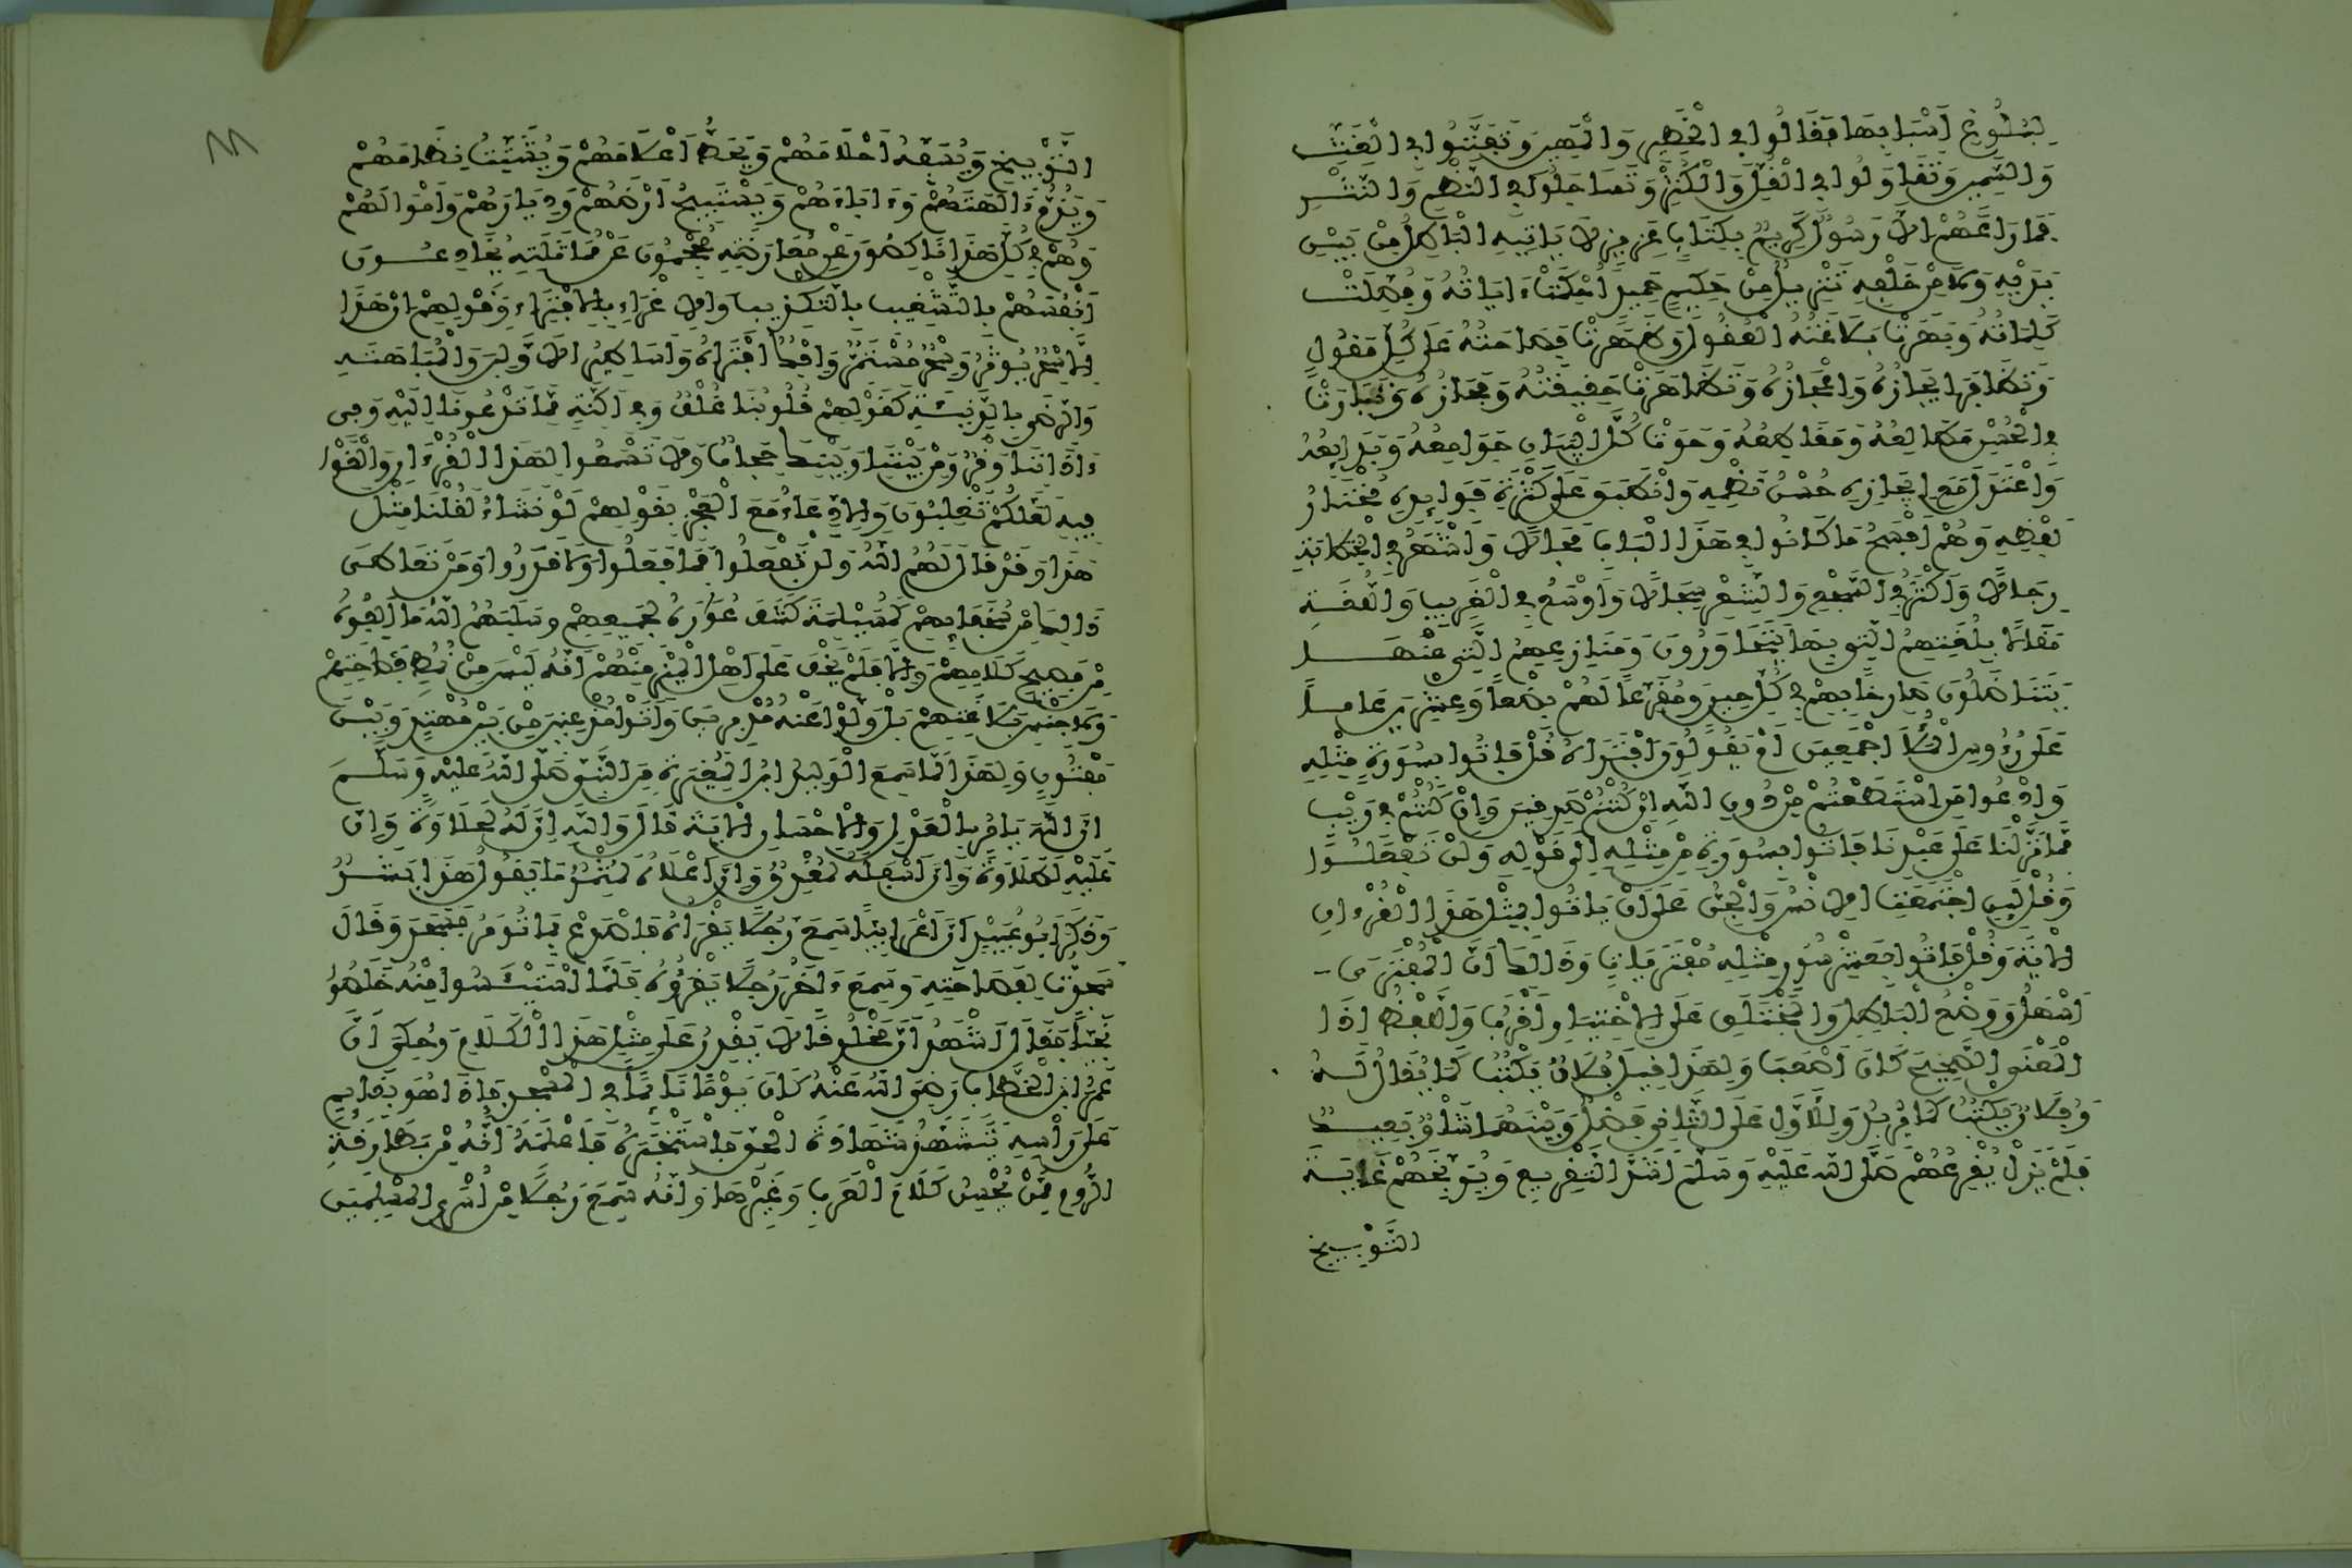 لبلوغ أسبابها فقالوا في الخطير والمهين وتفننوا في الغث
والسمين وتقاولوا في القل والكثر وتساجلوا في النظم والنثر
فما راعهم إلا رسول كريم بكتاب عزيز لا ياتيه الباطل من بين
يديه ولا من خلفه تنزيل من حكيم حميد أحكمت ءاياته وفصلت
كلماته وبهرت بلاغته العقول وظهرت فصاحته على كل مقول
وتظافر إيجازه وإعجازه وتظاهرت حقيقته ومجازه وتبارت
في الحسن مطالعه ومقاطعه وحوت كل البيان جوامعه وبدايعه
واعتدل مع إيجازه حسن نظمه وانطبق على كثرة فوايده مختار
لفظه وهم أفسح ما كانوا في هذا الباب مجالا وأشهر في الخطابة
رجالا وأكثر في السجع والشعر سجالا وأوسع في الغريب واللغة
مقالا بلغتهم التي بها يتحاورون ومنازعهم التي عنها
يتناضلون صارخا بهم في كل حين ومقرعا لهم بضعا وعشرين عاما
على رءوس الملإ أجمعين أم يقولون افتراه قل فاتوا بسورة مثله
وادعوا من استطعتم من دون الله إن كنتم صدقين وإن كنتم في ريب
مما نزلنا على عبدنا فاتوا بسورة من مثله إلى قوله ولن تفعلوا
وقل لئن اجتمعت الانس والجن على أن ياتوا بمثل هذا القرءان
الاية وقل فاتوا بعشر سور مثله مفتريات وذالك أن المفترى
أسهل ووضع الباطل والمختلق على الاختيار أقرب واللفظ إذا
المعنى الصحيح كان أصعب ولهذا قيل فلان يكتب كما يقال له
وفلان يكتب كما يريد وللأول على الثاني فضل وبينهما شأو بعيد
فلم يزل يقرعهم صلى الله عليه وسلم أشد التقريع ويوبخهم غاية
التوبيخ
التوبيخ ويسفه أحلامهم ويحط أعلامهم ويشتت نظامهم
ويذم ءالهتهم وءاباءهم ويستبيح أرضهم وديارهم وأموالهم
وهم في كل هذا ناكصون عن معارضته محجمون عن مماثلته يخادعون
أنفسهم بالتشغيب بالتكذيب والاغراء بالافتراء وقولهم إن هذا
إلا سحر يوثر وسحر مستمر وإفك افتراه وأساطير الاولين والمباهتة
والرضى بالدنيئة كقولهم قلوبنا غلف وفي أكنة مما تدعونا إليه وفي
ءاذاننا وقر ومن بيننا وبينك حجاب ولا تسمعوا لهذا القرءان والغوا
فيه لعلكم تغلبون والادعاء مع العجز بقولهم لو نشاء لقلنا مثل
هذا وقد قال لهم الله ولن تفعلوا فما فعلوا ولا قدروا ومن تعاطى
ذالك من سخفائهم كمسيلمة كشف عواره لجميعهم وسلبهم الله ما ألفوه
من فصيح كلامهم وإلا فلم يخف على أهل الميز منهم أنه ليس من نمط فصاحتهم
ولا جنس بلاغتهم بل ولوا عنه مدبرين وأتوا مذعنين من بين مهتد وبين
مفتون ولهذا لما سمع الوليد ابن المغيرة من النبي صلى الله عليه وسلم
إن الله يامر بالعدل والاحسان الاية قال والله إن له لحلاوة وإن
عليه لطلاوة وإن أسفله لمغدق وإن أعلاه لمثمر ما يقول هذا بشر
وذكر أبو عبيد أن أعرابيا سمع رجلا يقرأ فاصدع بما تومر فسجد وقال
سجدت لفصاحته وسمع ءاخر رجلا يقرؤه فلما استيئسوا منه خلصوا
نجيا فقال أشهد أن مخلوقا لا يقدر على مثل هذا الكلام وحكي أن
عمر ابن الخطاب رضي الله عنه كان يوما نائما في المسجد فإذا هو بقايم
على رأسه يتشهد شهادة الحق فاستخبره فأعلمه أنه من بطارقة
الروم ممن يحسن كلام العرب وغيرها وأنه سمع رجلا من أسرى المسلمين